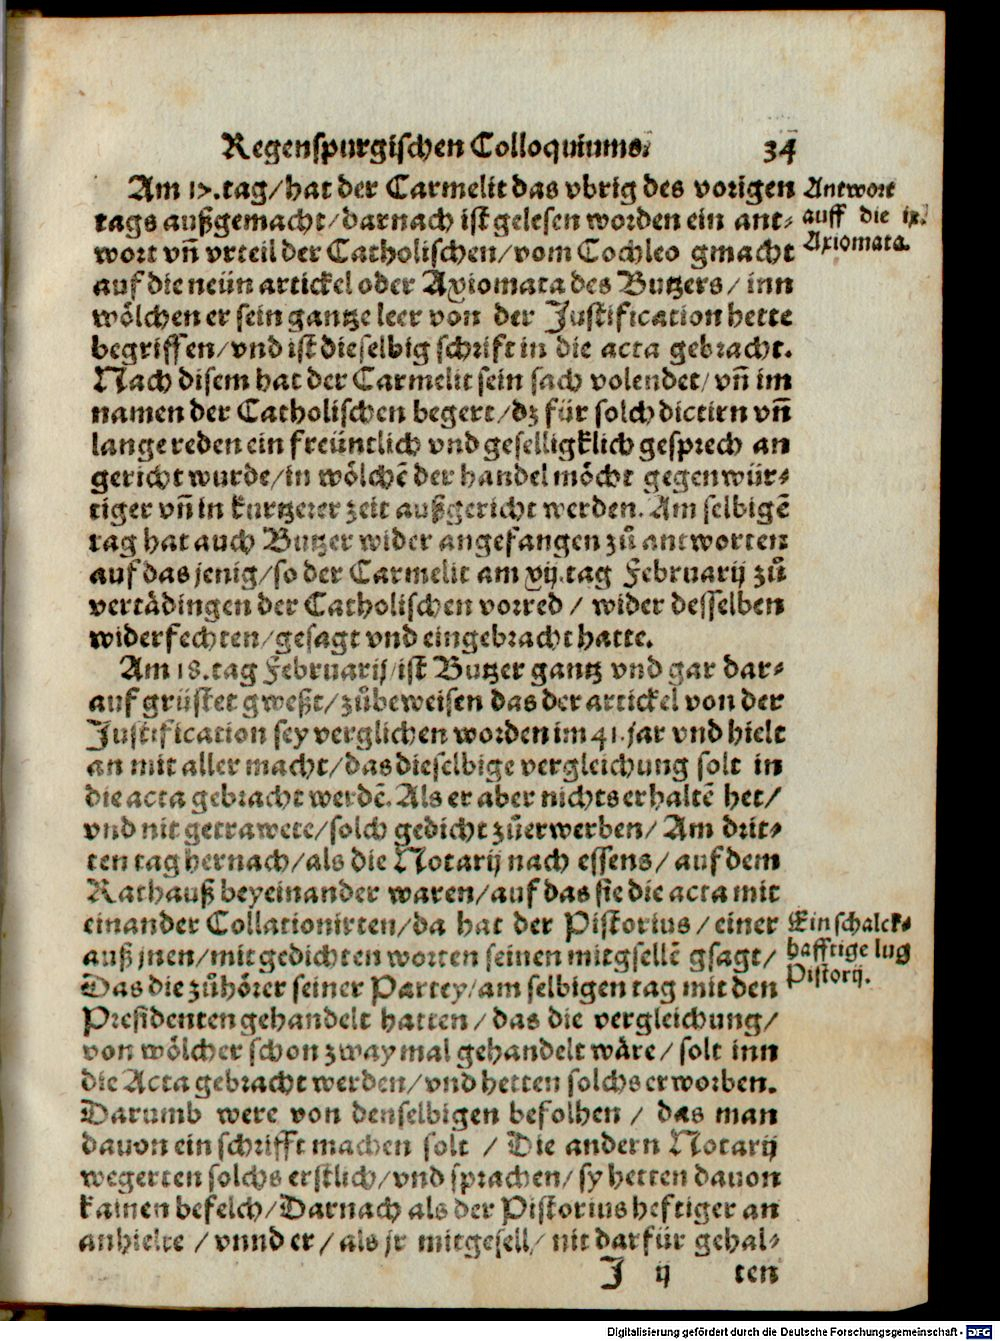 Regenspurgischen Colloquiums. 34
Am 17. tag/hat der Carmelit das vbrig des vorigen
tags außgemacht/darnach ist gelesen worden ein ant⸗
wort vn̄ vrteil der Catholischen/vom Cochleo gmacht
auf die neün artickel oder Axiomata des Butzers/inn
wölchen er sein gantze leer von der Justification hette
begriffen/vnd ist dieselbig schrift in die acta gebracht.
Nach disem hat der Carmelit sein sach volendet/vn̄ im
namen der Catholischen begert/dz für solch dictirn vn̄
lange reden ein freüntlich vnd geselligklich gesprech an
gericht wurde/in wölchē der handel möcht gegenwür⸗
tiger vn̄ in kurtzerer zeit außgericht werden. Am selbigē
tag hat auch Butzer wider angefangen zů antworten
auf das jenig/so der Carmelit am xvj. tag Februarij zů
vertädingen der Catholischen vorred / wider desselben
widerfechten/gesagt vnd eingebracht hatte.
Am 18. tag Februarij/ist Butzer gantz vnd gar dar⸗
auf grüstet gweßt/zůbeweisen das der artickel von der
Justification sey verglichen worden im 41. jar vnd hielt
an mit aller macht/das dieselbige vergleichung solt in
die acta gebracht werdē. Als er aber nichts erhaltē het/
vnd nit getrawete/solch gedicht zůerwerben/ Am drit⸗
ten tag hernach/als die Notarij nach essens/auf dem
Rathauß beyeinander waren/auf das sie die acta mit
einander Collationirten/da hat der Pistorius/einer
auß jnen/mit gedichten worten seinen mitgsellē gsagt/
Das die zůhörer seiner Partey/am selbigen tag mit den
Presidenten gehandelt hatten/das die vergleichung/
von wölcher schon zway mal gehandelt wäre/solt inn
die Acta gebracht werden/vnd hetten solchs erworben.
Darumb were von denselbigen befolhen / das man
dauon ein schrifft machen solt / Die andern Notarij
wegerten solchs erstlich/vnd sprachen/sy hetten dauon
kainen befelch/Darnach als der Pistorius heftiger an
anhielte /vnnd er/als jr mitgesell/nit darfür gehal⸗
J ij ten
Antwort
auff die ix.
Axiomata.
Ein schalck⸗
hafftige lug
Pistorij.
Digitalisierung gefördert durch die Deutsche Forschungsgemeinschaft - DFG